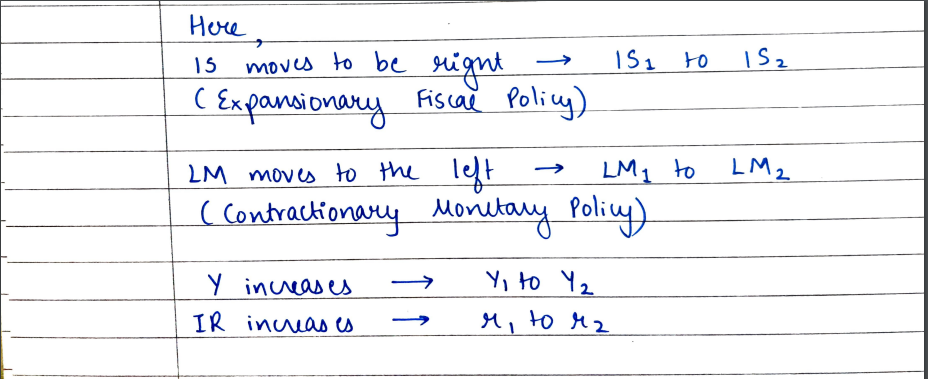 Here,
IS moves to be right → IS₁ to IS₂
(Expansionary Fiscal Policy)
LM moves to the left → LM₁ to LM₂
(Contractionary Monetary Policy)
Y increases → Y₁ to Y₂
IR increases → r₁ to r₂